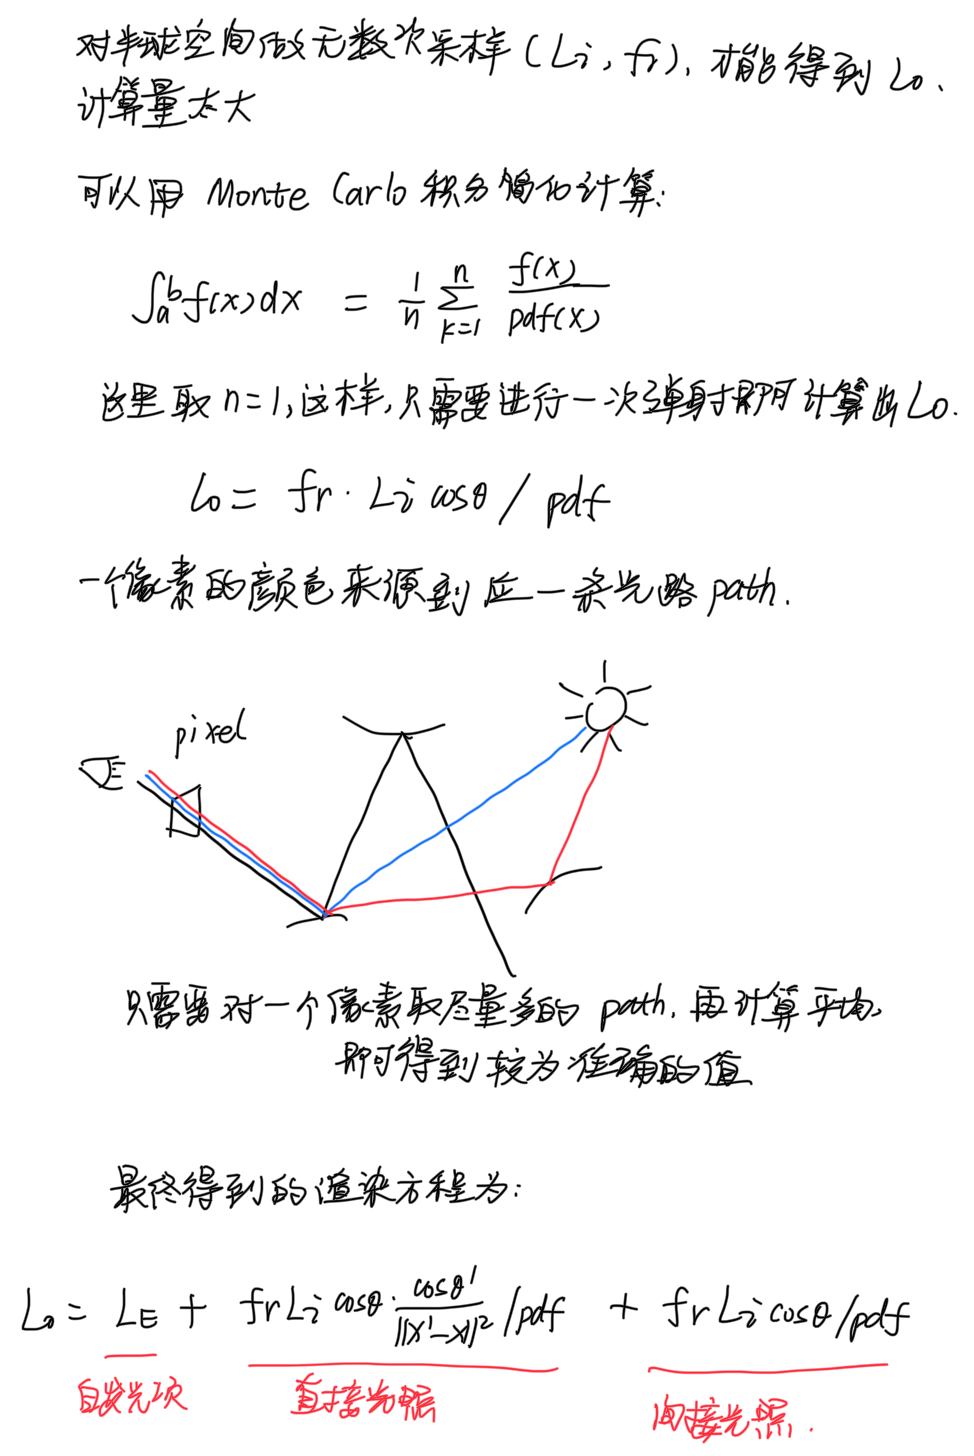 对半球空间做无数次采样(Li, fr), 才能得到 Lo.
计算量太大
可以用 Monte Carlo 积分简化计算:
∫_a^b f(x)dx = 1/n ∑_{k=1}^n f(x)/pdf(x)
这里取n=1,这样,只需要进行一次弹射即可计算出Lo.
Lo = fr · Li cosθ / pdf
一个像素的颜色来源到应一条光路path.
pixel
只需要对一个像素取尽量多的 path, 再计算平均,
即可得到较为准确的值
最终得到的渲染方程为:
Lo = LE + fr Li cosθ · cosθ'/||x'-x||² /pdf + fr Li cosθ/pdf
自发光项 直接光照 间接光照.